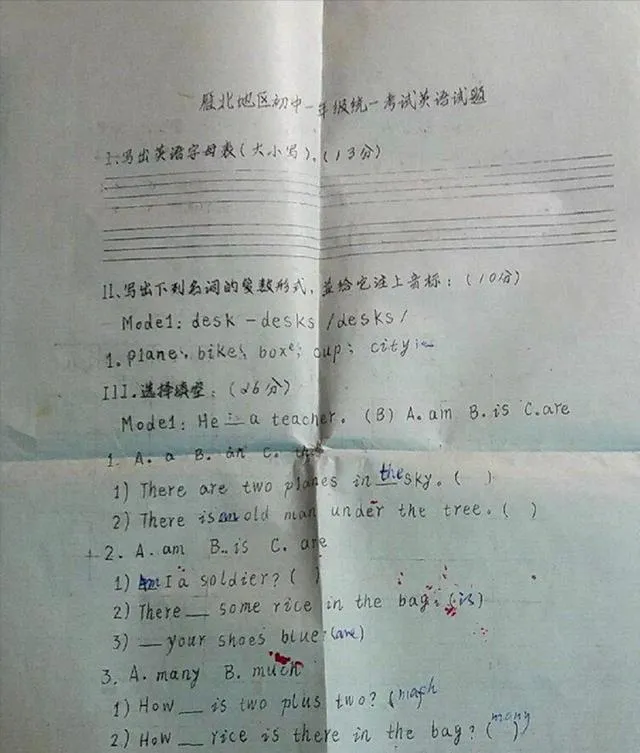 雁北地区初中一年级统一考试英语试题
I.写出英语字母表(大小写)。(13分)
II、写出下列名词的复数形式,并给它注上音标:(10分)
Model: desk – desks /desks/
1. plane, bike, box, cup; city
III.选择填空:(26分)
Model: He is a teacher. (B) A. am B. is C. are
1. A. a B. an C. the
1) There are two planes in the sky. ( )
2) There is an old man under the tree. ( )
2. A. am B. is C. are
1) Am I a soldier? ( )
2) There __ some rice in the bag. (is)
3) __ your shoes blue? (are)
3. A. many B. much
1) How __ is two plus two? (
2) How __ rice is there in the bag? (many)